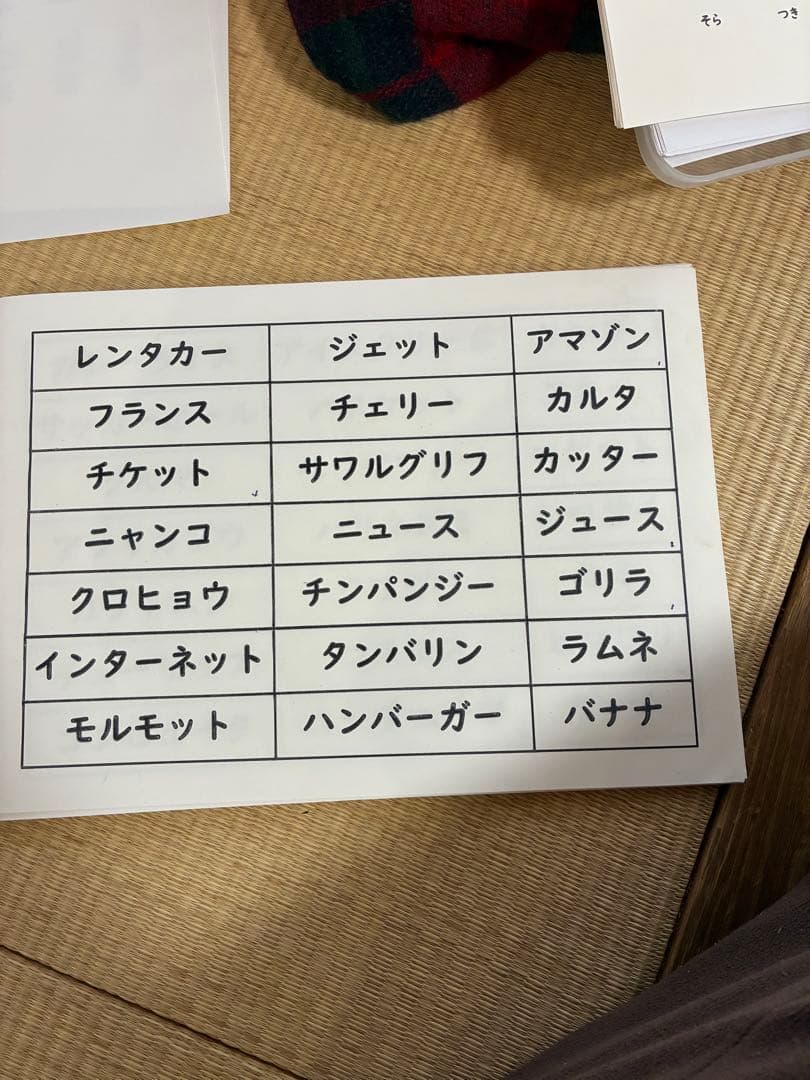 そら つき
レンタカー ジェット アマゾン
フランス チェリー カルタ
チケット サワルグリフ カッター
ニャンコ ニュース ジュース
クロヒョウ チンパンジー ゴリラ
インターネット タンバリン ラムネ
モルモット ハンバーガー バナナ